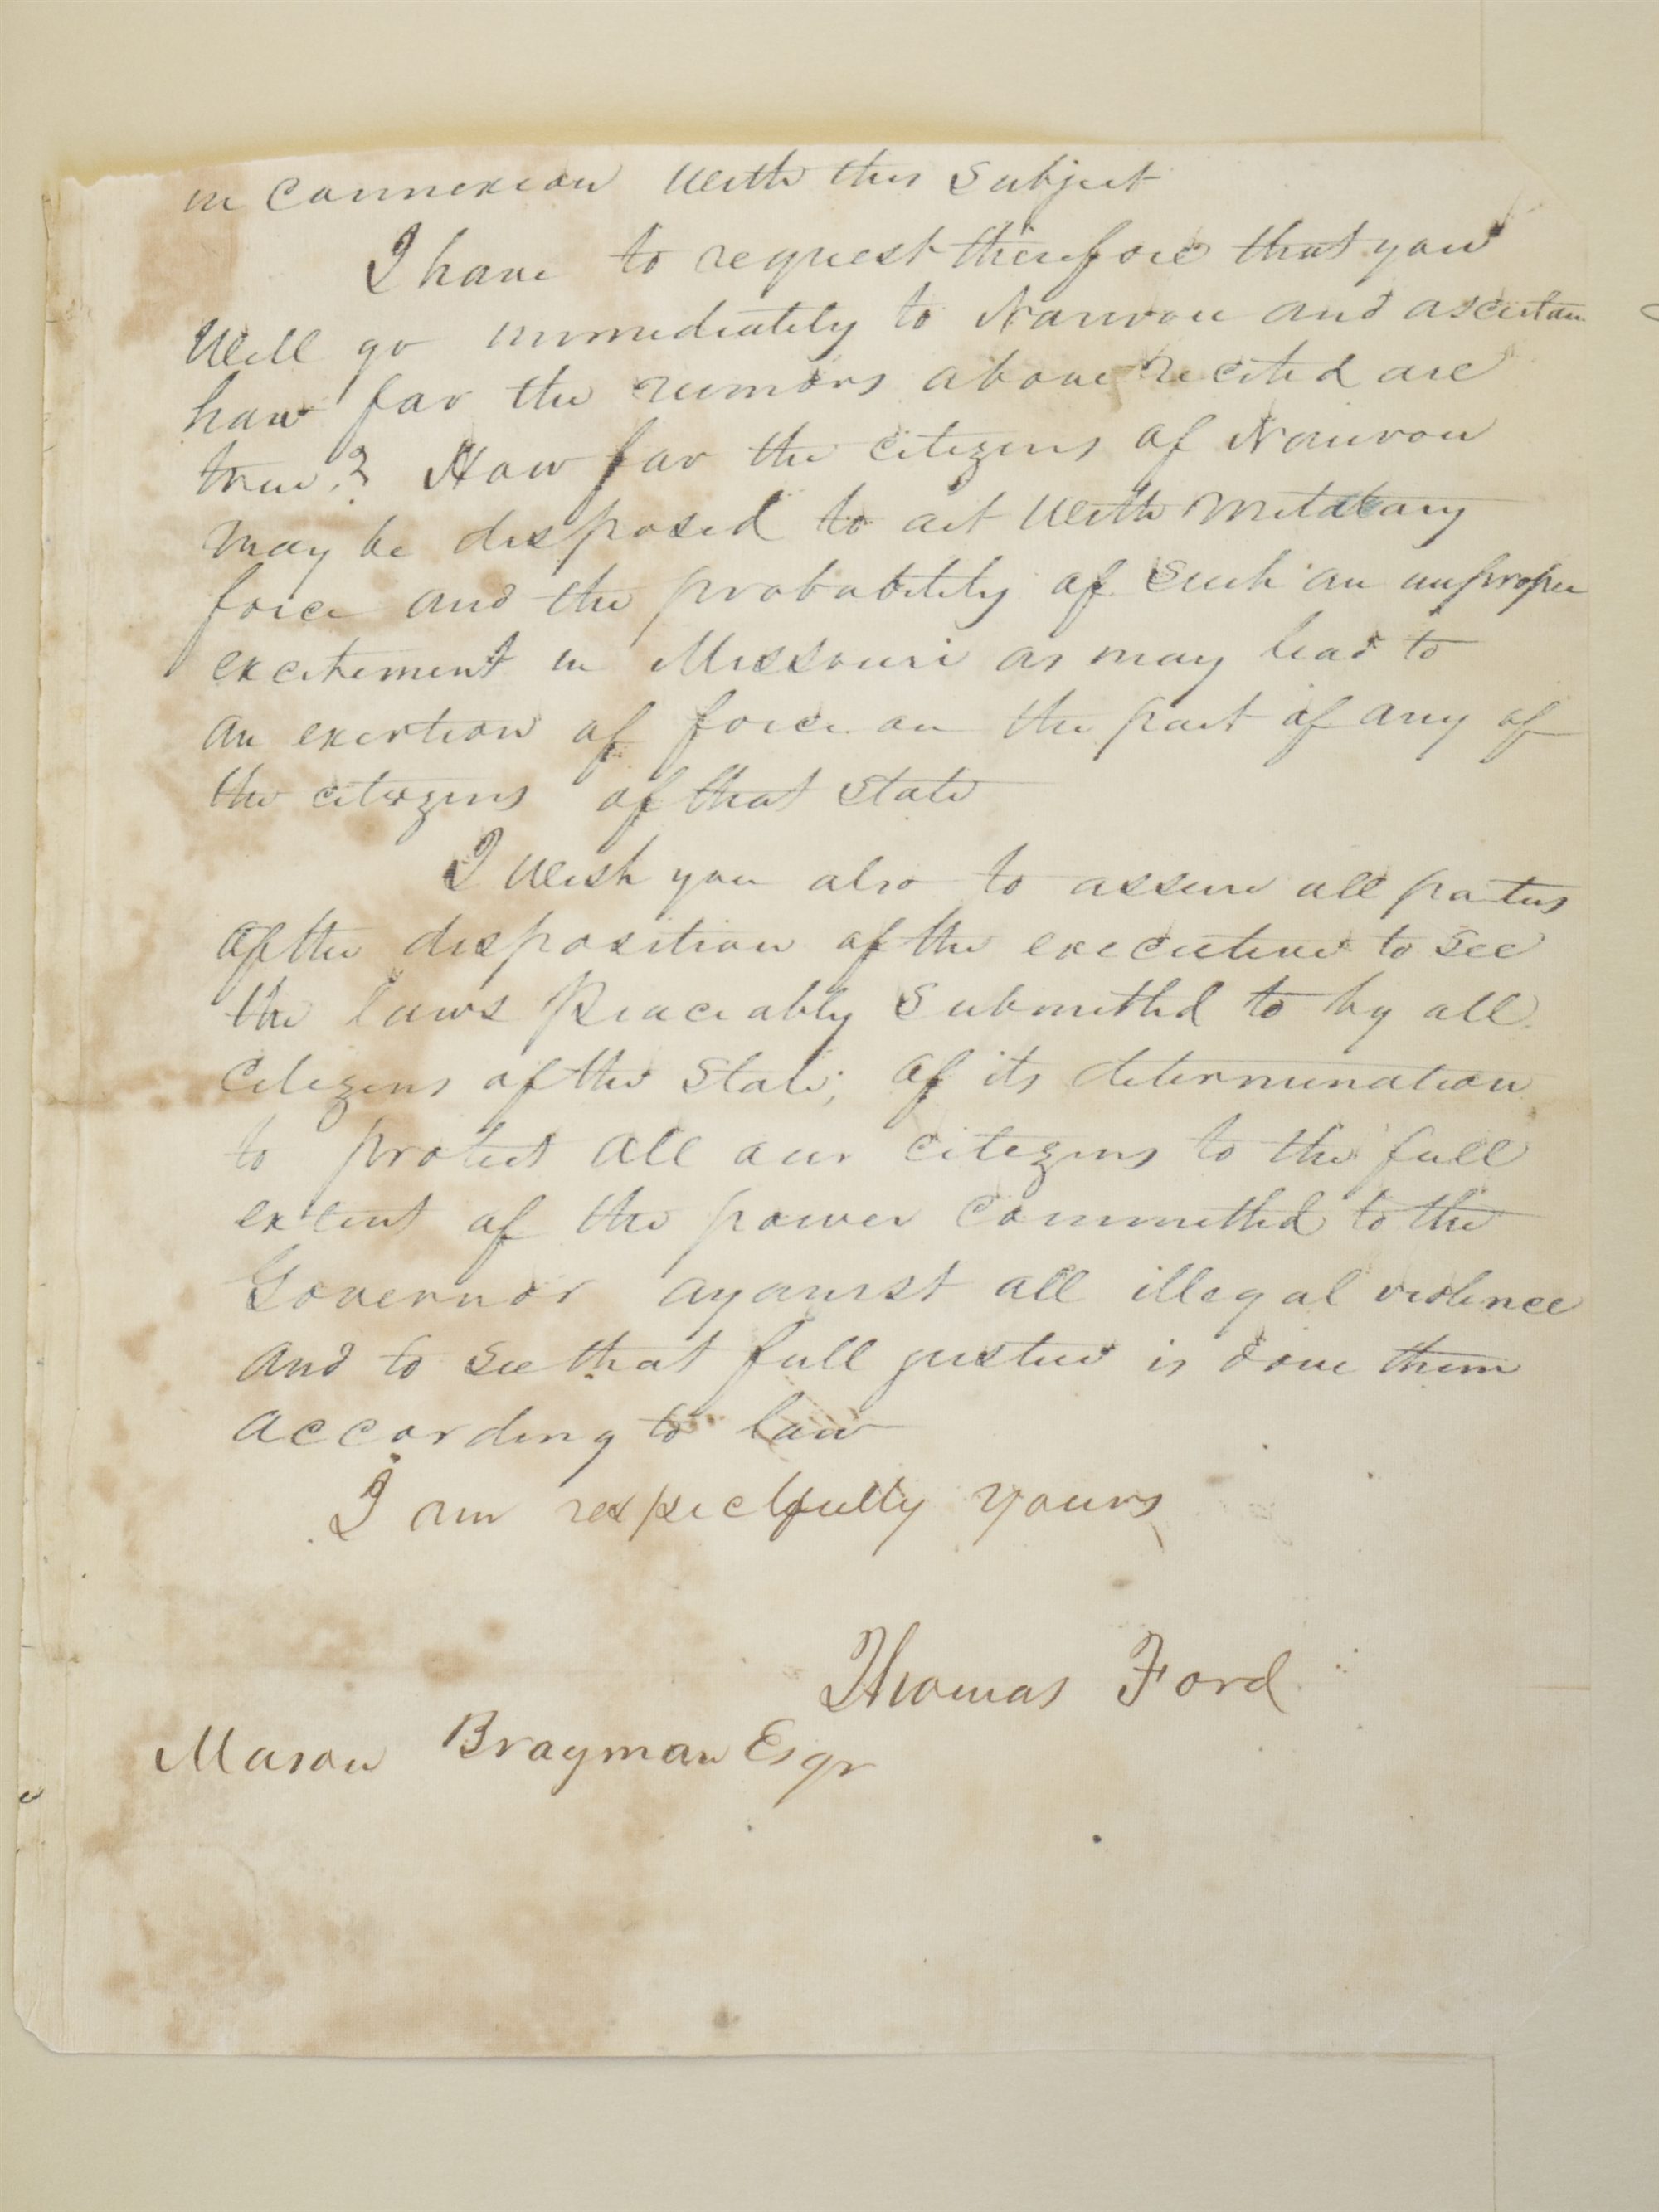 in connexion with this subject
I have to request therefore that you
will go immediately to Nauvoo and ascertain
how far the rumors above recited are
true? How far the citizens of Nauvoo
may be disposed to act with military
force and the probability of such an improper
excitement in Missouri as may lead to
an exertion of force on the part of any of
the citizens of that state
I wish you also to assure all parties
of the disposition of the executive to see
the laws peaceably submitted to by all
citizens of the State; of its determination
to protect all our citizens to the full
extent of the power committed to the
Governor against all illegal violence
and to see that full justice is done them
according to law
I am respectfully yours
Thomas Ford
Mason Brayman Esqr